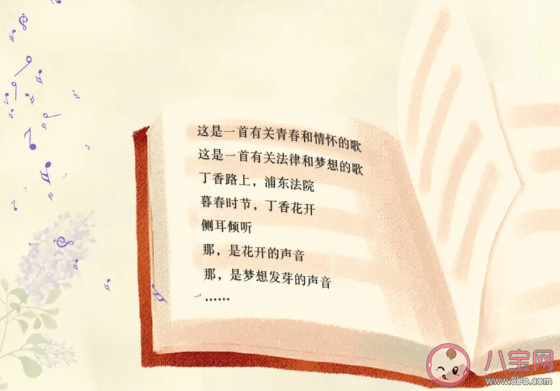 这是一首有关青春和情怀的歌
这是一首有关法律和梦想的歌
丁香路上，浦东法院
暮春时节，丁香花开
侧耳倾听
那，是花开的声音
那，是梦想发芽的声音
……
八宝网